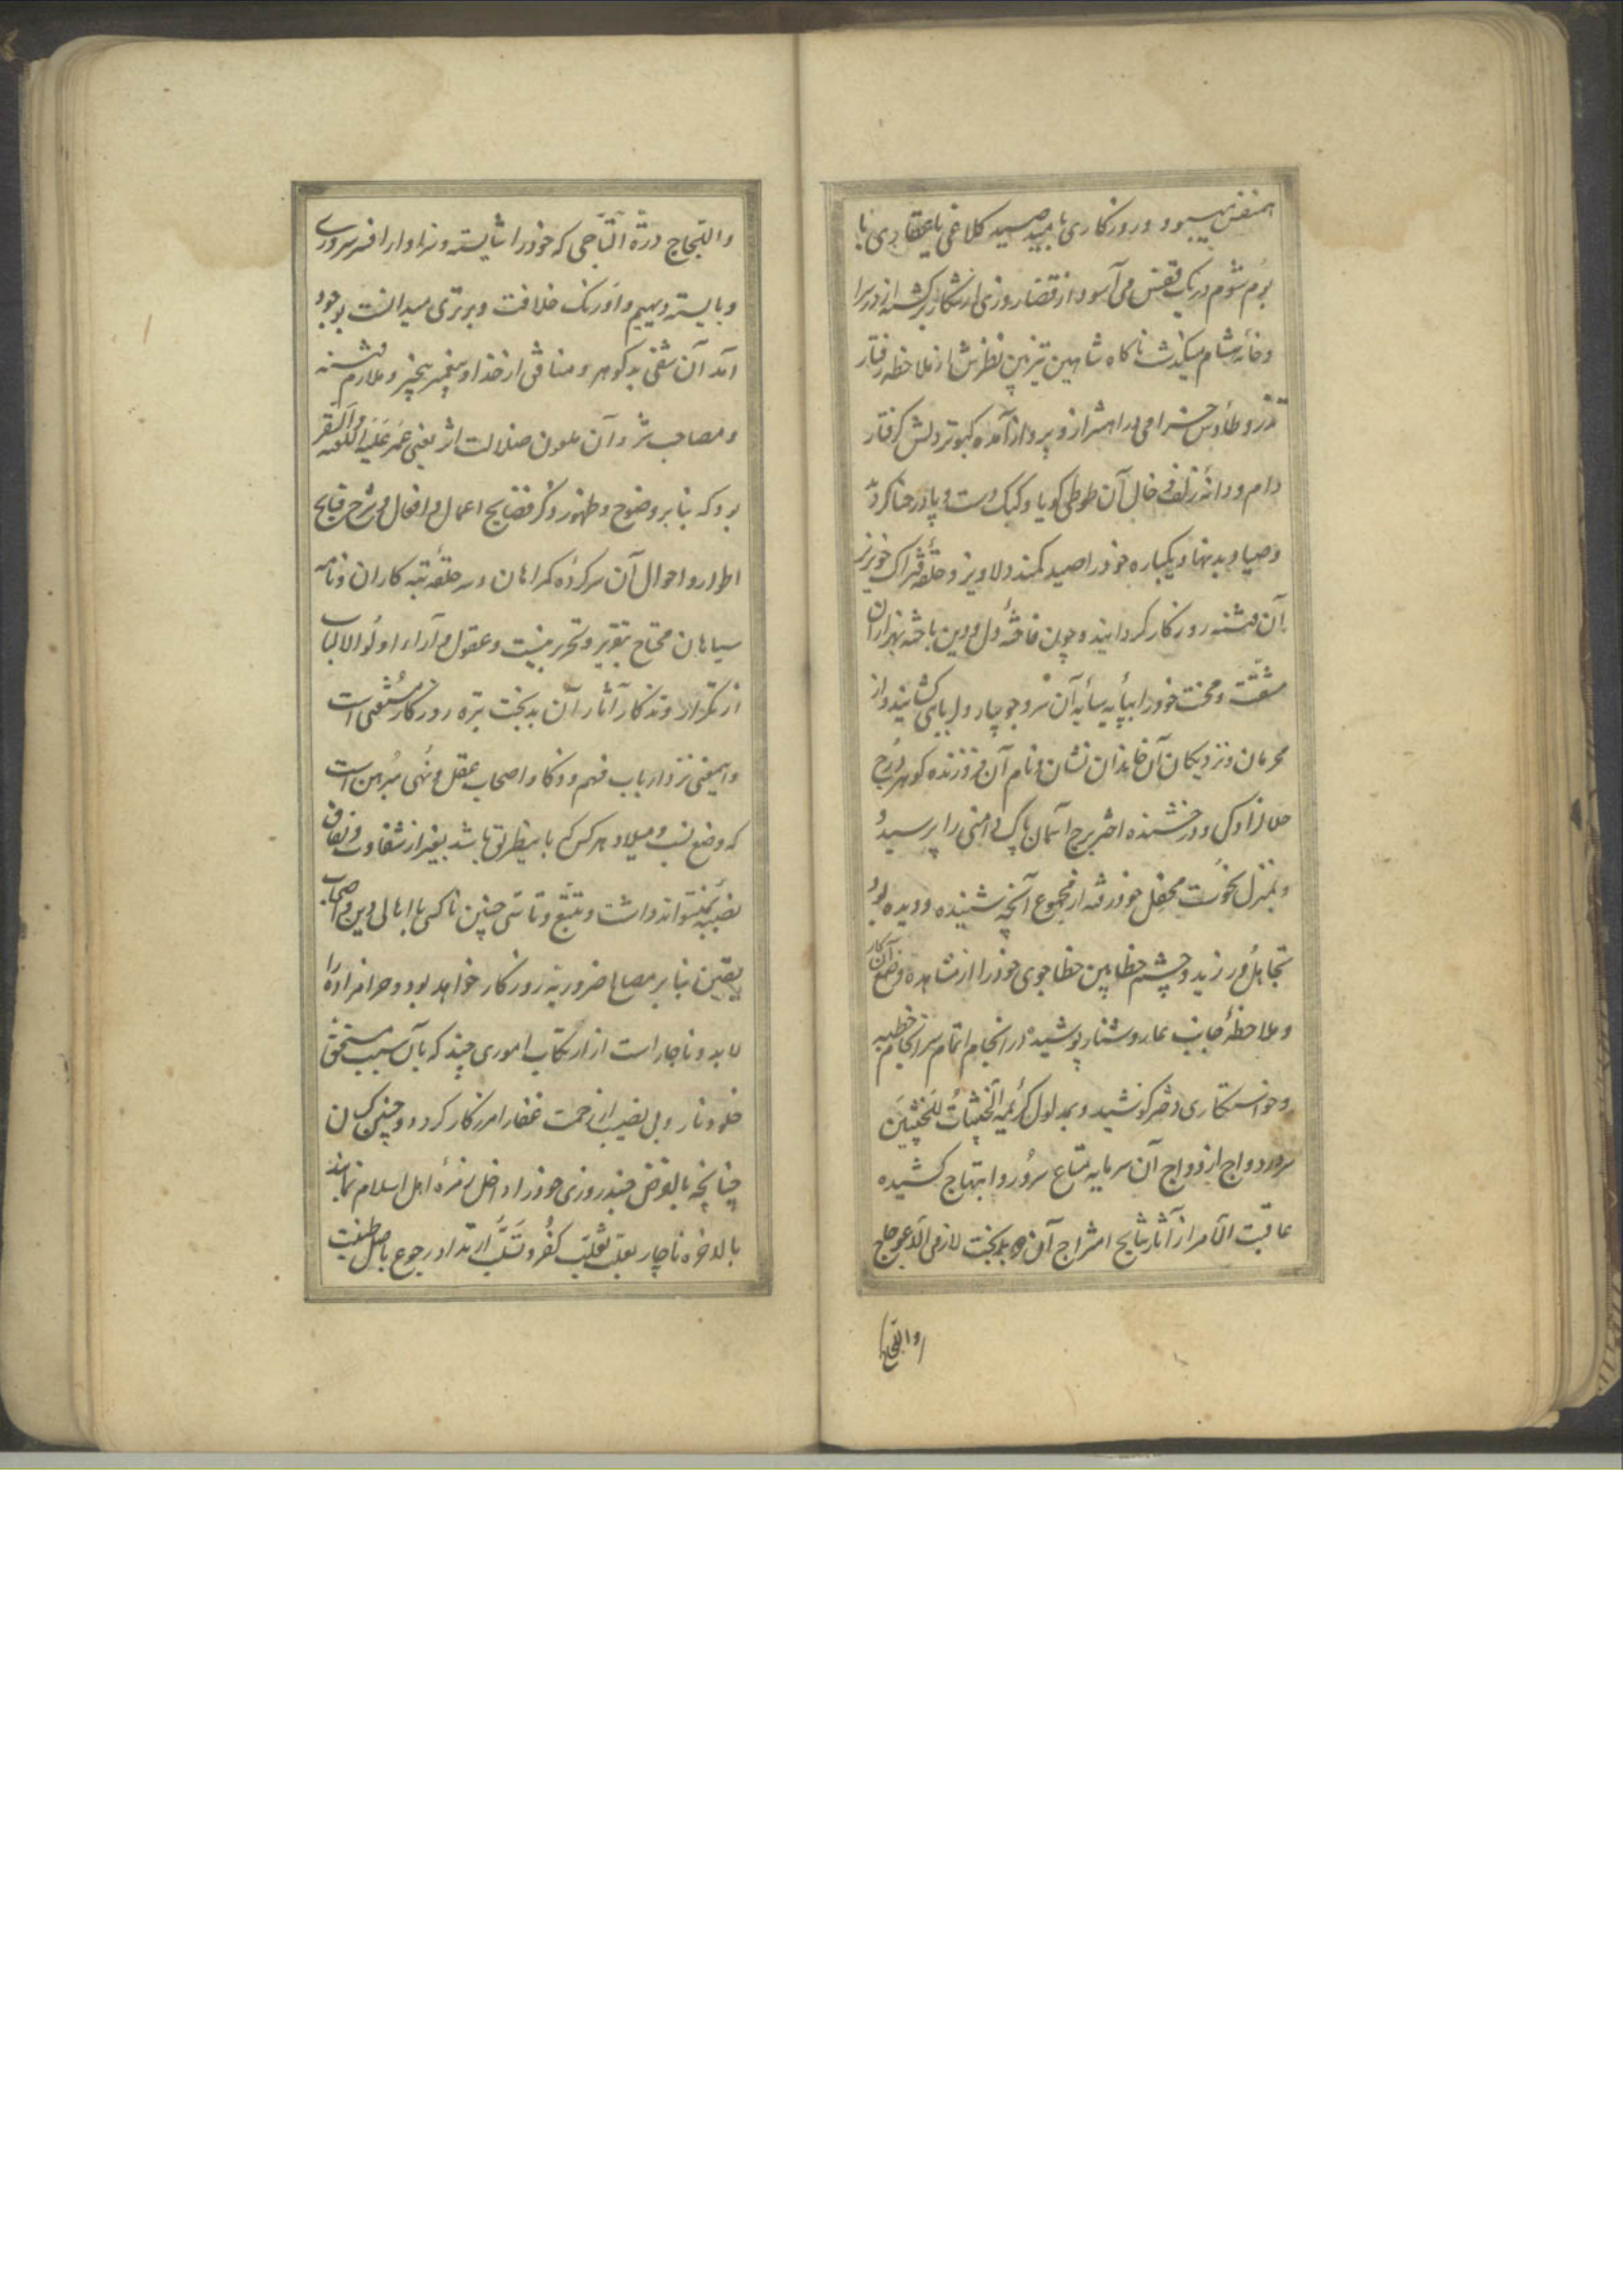 همنفس میبود و روزکاری بامید صید کلاغی با عقابی یا
بوم شوم در یک قفس می آسود از قضا روزی از شکار برکشته از در سرا
و خانه هشام میکذشت ناکاه شاهین تیزبین نظرش از ملاحظه رفتار
تذرو طاوس خرامی در اهتزاز و پرواز آمده کبوتر دلش کرفتار
دام و دانه زلف و خال آن طوطی کویا و کبک دست و پا در حنا کردید
و صیاد بدنهاد یکباره خود را صید کمند دلاویز و حلقه فتراک خونریز
آن فتنه روزکار کردانید و چون فاخته دل و دین باخته بهزاران
مشقت و محنت خود را بپایه سایه آن سرو جویبار دلربایی کشانید و از
محرمان و نزدیکان آن خاندان نشان و نام آن فروزنده کوهر درج
حلالزادکی و درخشنده اختر برج آسمان پاک دامنی را پرسید
و بمنزل نحوست محفل خود رفته از مجموع آنچه شنیده و دیده بود
تجاهل ورزید و چشم خطابین خطاجوی خود را از مشاهده وضع آن کار
و ملاحظه جانب عار و شنار پوشیده در انجام اتمام سرانجام خطبه
و خواستکاری دختر کوشید و بمدلول کریمه الخبیثات للخبیثین
سر و رواج ازدواج آن سرمایه متاع سرور و ابتهاج کشیده
عاقبت الامر از آثار نتایج امتزاج آن دو بدبخت لازمی الاعوجاج
والتجاج
والتجاج درة التاجی که خود را شایسته و سزاوار افسر سروری
و بایسته دیهیم و اورنک خلافت و برتری میدانست بوجود
آمد آن شقی بدکوهر و منافق از خدا و پیغمبر بیخبر و ملازم فتنه
و مصاحب شر و آن ملعون ضلالت اثر یعنی عمر علیه اللعنة والسقر
بود که بنابر وضوح و ظهور ذکر فضایح اعمال و افعال و شرح قبایح
اطوار و احوال آن سرکرده کمراهان و سر حلقه تبه کاران و نامه
سیاهان محتاج بتقریر و تحریر نیست و عقول و آراء اولوالالباب
از تکرار و تذکار آثار آن بدبخت تیره روزکار مستغنی است
و اینمعنی نزد ارباب فهم و ذکا و اصحاب عقل و نهی مبرهن است
که وضع نسب و میلاد هر کس که باینطریق باشد بغیر از شقاوت و نفاق
نصیبه نمیتواند داشت و تتبع و تاسی چنین ناکسی با اهالی دین و اصحاب
یقین بنابر مصالح ضروریه روزکار خواهد بود و حرامزاده را
لابد و ناچار است از ارتکاب اموری چند که بآن سبب مستحق
خلود نار و بی نصیب از رحمت غفار آمرزکار کردد و چنین کسان
چنانچه بالفرض چند روزی خود را داخل زمره اهل اسلام نمایند
بالاخره ناچار بعلت تقلیب کفر و تشبث ارتداد رجوع باصل طینت